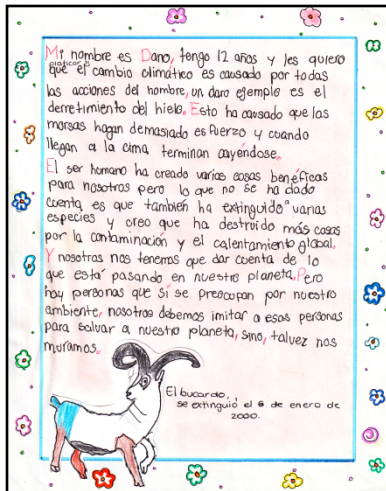 Mi nombre es Dano, tengo 12 años y les quiero
platicar
que el cambio climático es causado por todas
las acciones del hombre, un claro ejemplo es el
derretimiento del hielo. Esto ha causado que las
morsas hagan demasiado esfuerzo y cuando
llegan a la cima terminan cayéndose.
El ser humano ha creado varias cosas benéficas
para nosotros pero lo que no se ha dado
cuenta es que también ha extinguido a varias
especies y creo que ha destruido más cosas
por la contaminación y el calentamiento global.
Y nosotros nos tenemos que dar cuenta de lo
que está pasando en nuestro planeta. Pero
hay personas que sí se preocupan por nuestro
ambiente, nosotros debemos imitar a esas personas
para salvar a nuestro planeta, sino, talvez nos
muramos.
El bucardo,
se extinguió el 6 de enero de
2000.